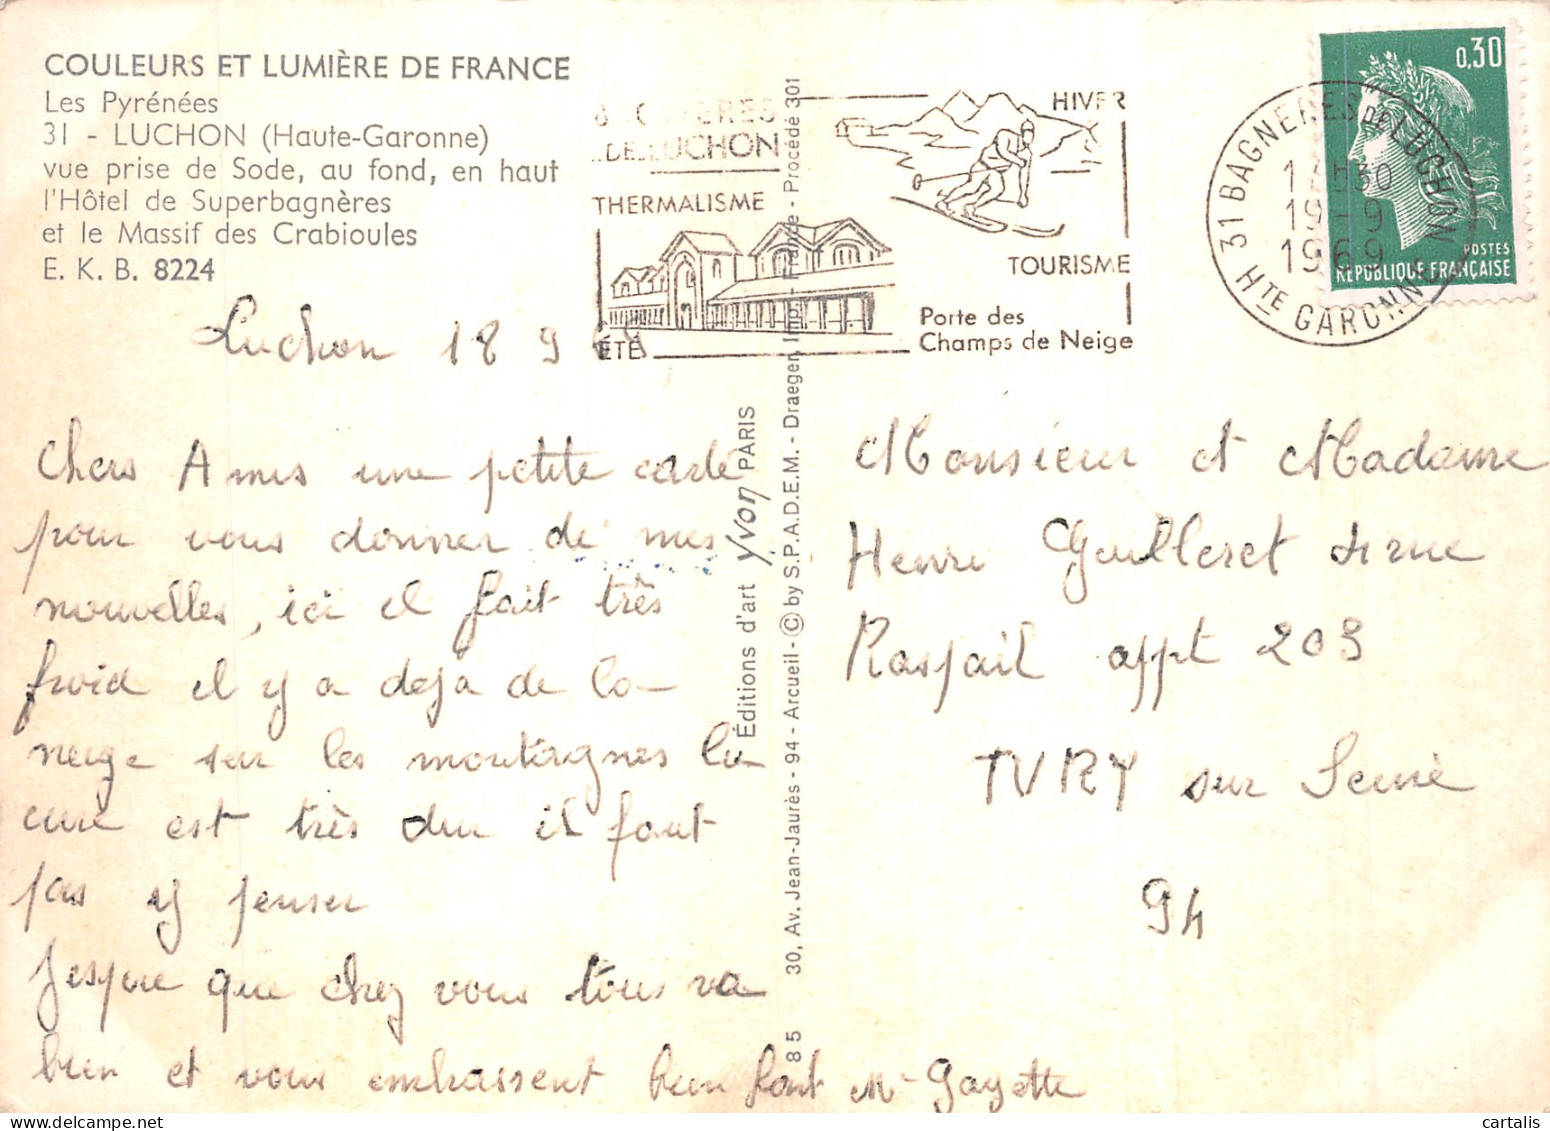 COULEURS ET LUMIÈRE DE FRANCE
Les Pyrénées
31 - LUCHON (Haute-Garonne)
vue prise de Sode, au fond, en haut
l'Hôtel de Superbagnères
et le Massif des Crabioules
E. K. B. 8224
DE LUCHON
THERMALISME
ÉTÉ
HIVER
TOURISME
Porte des
Champs de Neige
31 BAGNERES DE LUCHON
HTE GARONNE
17H30
19-9
1969
0,30
POSTES
REPUBLIQUE FRANÇAISE
Luchon 18 9 69
Chers Amis une petite carte
pour vous donner de mes
nouvelles, ici il fait très
froid il y a deja de la
neige sur les montagnes la
cure est très dur il faut
pas y penser
Jespere que chez vous tous va
bien et vous embrassent bien fort Mr Gayette
Éditions d'art Yvon PARIS
85 30, Av. Jean-Jaurès - 94 - Arcueil - © by S.P.A.D.E.M. - Draeger, Imp. - France - Procédé 301
Monsieur et Madame
Henri Guilleret rue
Raspail appt 203
IVRY sur Seine
94
cartalis